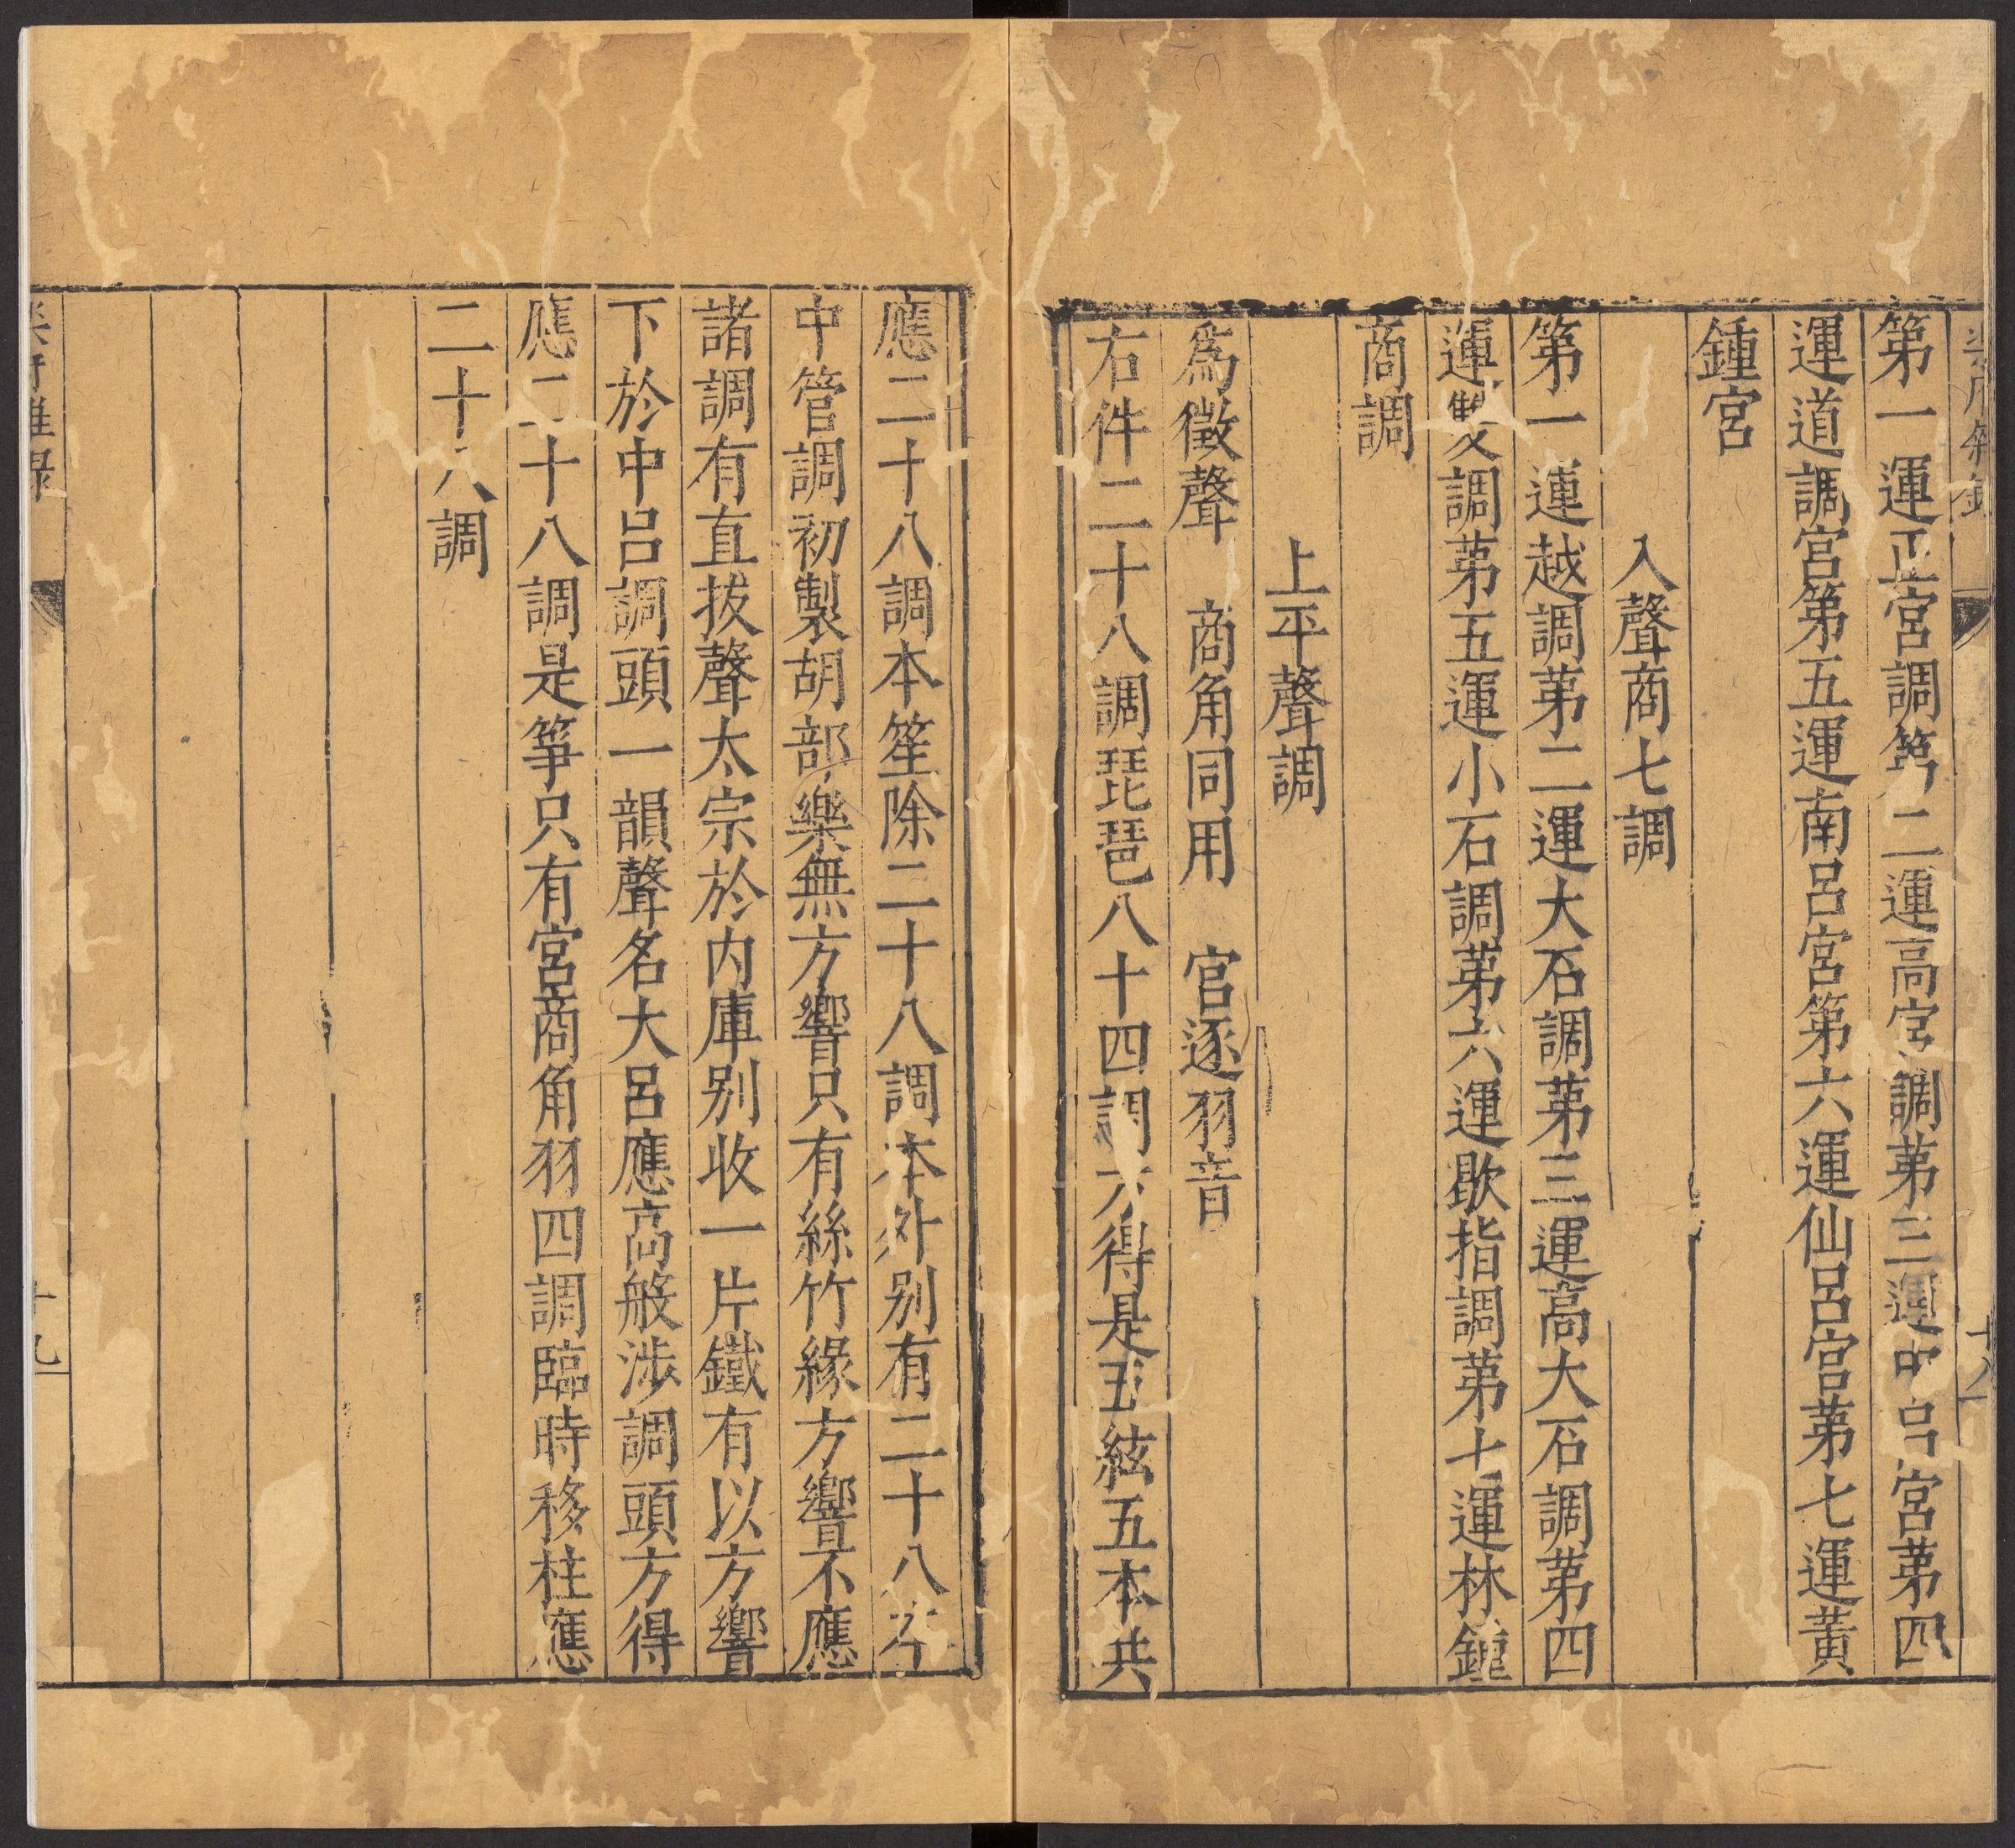 樂府雜錄
十八
第一運正宮調第二運高宮調第三運中呂宮第四
運道調宮第五運南呂宮第六運仙呂宮第七運黃
鍾宮
入聲商七調
第一運越調第二運大石調第三運高大石調第四
運雙調第五運小石調第六運歇指調第七運林鐘
商調
上平聲調
爲徵聲　商角同用　宮逐羽音
右件二十八調琵琶八十四調方得是五絃五本共
應二十八調本笙除二十八調本外別有二十八本
中管調初製胡部樂無方響只有絲竹緣方響不應
諸調有直拔聲太宗於內庫別收一片鐵有以方響
下於中呂調頭一韻聲名大呂應高般涉調頭方得
應二十八調是箏只有宮商角羽四調臨時移柱應
二十八調
樂府雜錄
十九